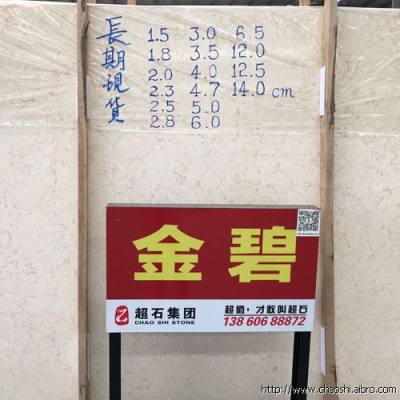 長期現貨
1.5 3.0 6.5
1.8 3.5 12.0
2.0 4.0 12.5
2.3 4.7 14.0 cm
2.5 5.0
2.8 6.0
金碧
超石集团
CHAO SHI STONE
超值，才敢叫超石
138 606 88872
http://www.chaoshi.aibro.com